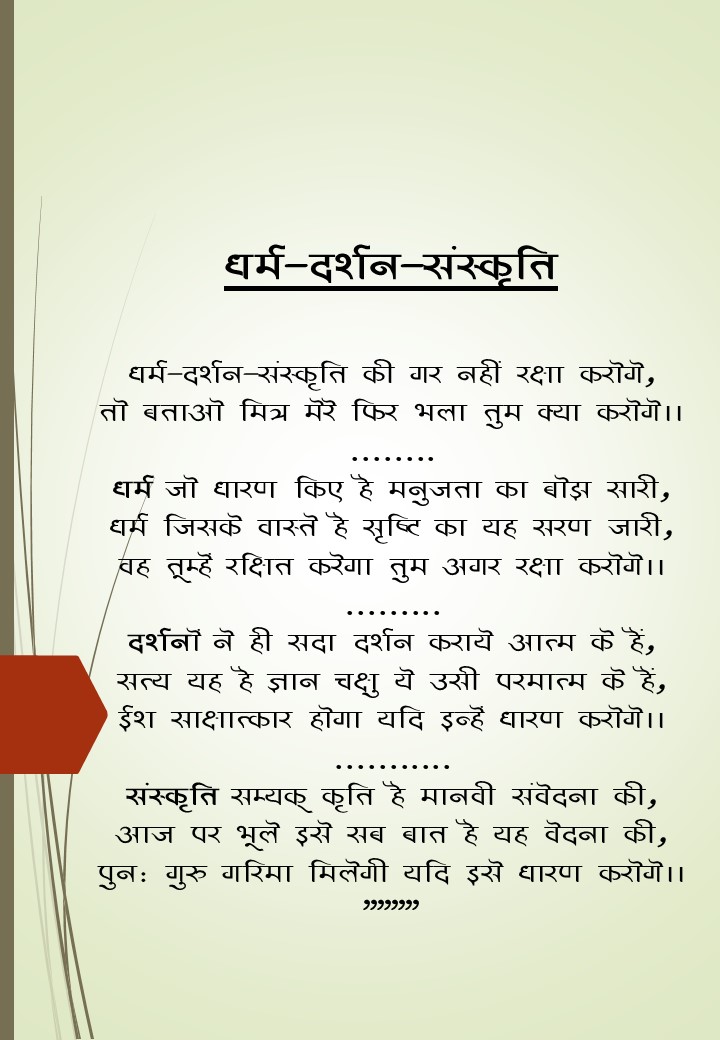 धर्म–दर्शन–संस्कृति
धर्म–दर्शन–संस्कृति की गर नहीं रक्षा करोगे,
तो बताओ मित्र मेरे फिर भला तुम क्या करोगे।।
........
धर्म जो धारण किए है मनुजता का बोझ सारी,
धर्म जिसके वास्ते है सृष्टि का यह सरण जारी,
वह तूम्हें रक्षित करेगा तुम अगर रक्षा करोगे।।
.........
दर्शनों ने ही सदा दर्शन कराये आत्म के हैं,
सत्य यह है ज्ञान चक्षु ये उसी परमात्म के हैं,
ईश साक्षात्कार होगा यदि इन्हें धारण करोगे।।
...........
संस्कृति सम्यक् कृति है मानवी संवेदना की,
आज पर भूले इसे सब बात है यह वेदना की,
पुनः गुरु गरिमा मिलेगी यदि इसे धारण करोगे।।
,,,,,,,,